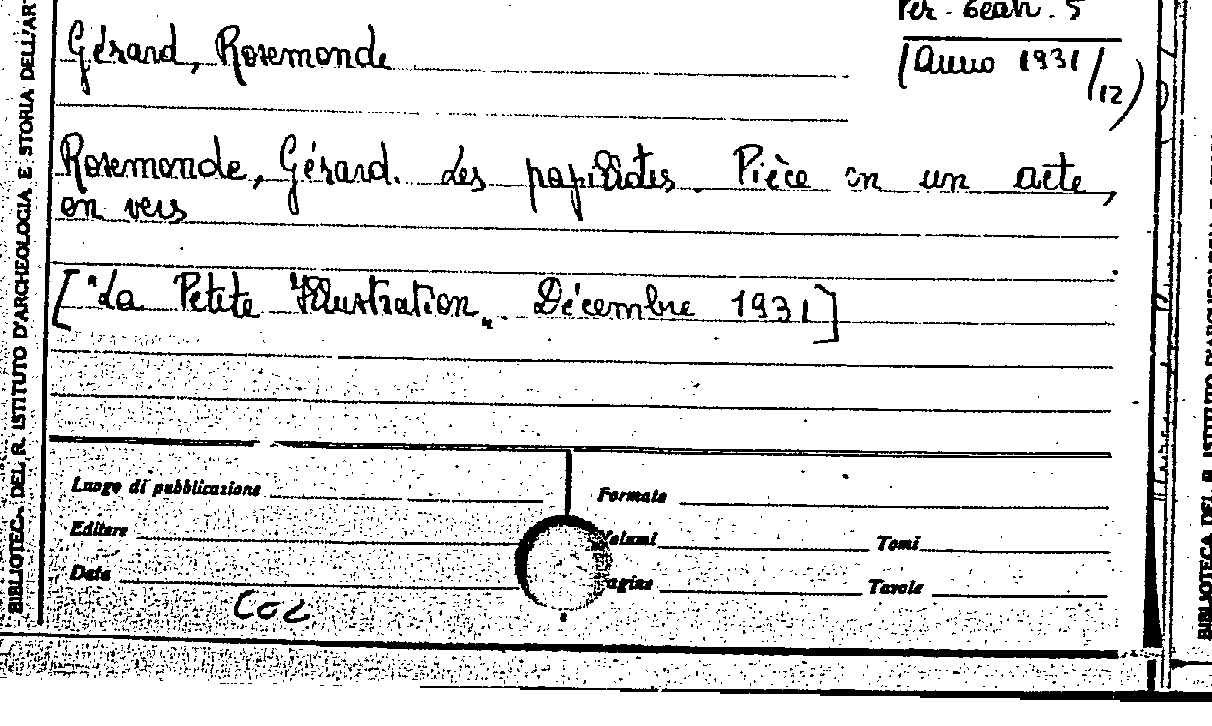 Per. Geah. 5
Gérard, Rosemonde
(Anno 1931/12)
Rosemonde, Gérard. Les papillotes. Pièce en un acte,
en vers
["La Petite Illustration„. Décembre 1931]
Luogo di pubblicazione
Formato
Editore
Volumi
Tomi
Data
Pagine
Tavole
Coz
BIBLIOTECA DEL R. ISTITUTO D'ARCHEOLOGIA E STORIA DELL'AR
BIBLIOTECA DEL R. ISTITUTO D'ARCHEOLOGIA E